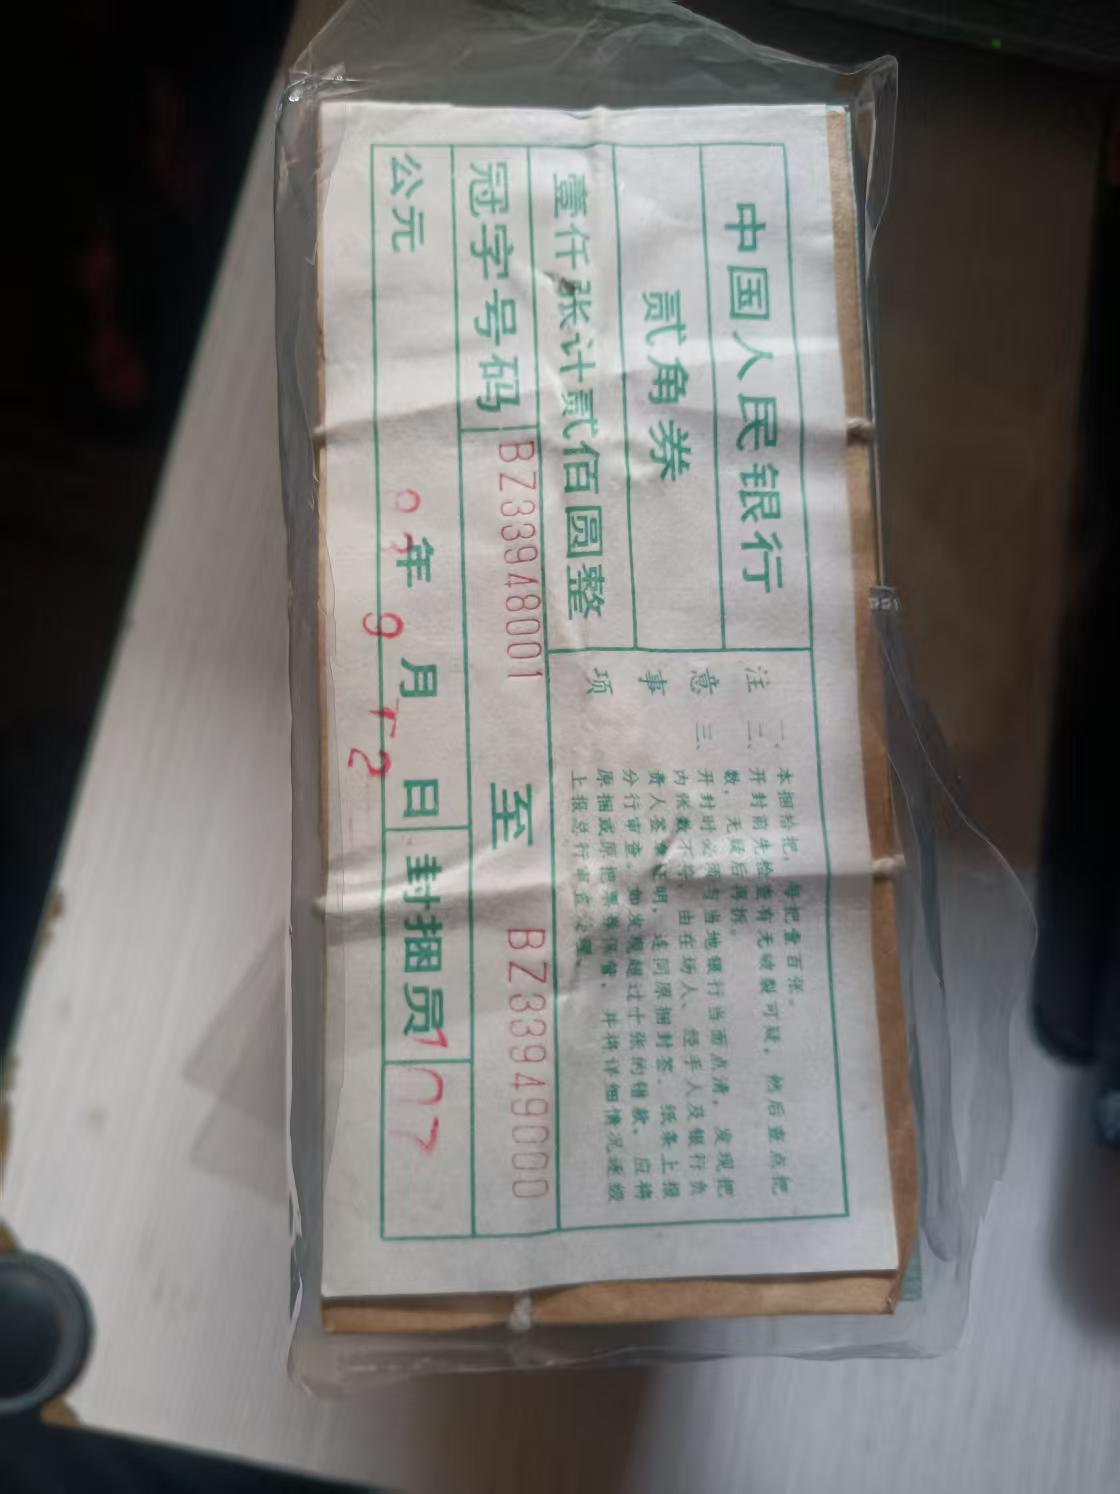 中国人民银行
贰角券
壹仟张计贰佰圆整
注意事项
一、本捆拾把，每把壹百张。
二、开封前先检查有无破裂可疑，然后查点把
数，无疑后再拆。
三、开封时必须与当地银行当面点清，发现把
内张数不符，由在场人、经手人及银行负
责人签章证明，连同原捆封签、纸条上报
分行审查，如发现超过十张的错款，应将
原捆或原把票券保管，并将详细情况逐级
上报总行审查处理。
冠字号码 BZ33948001 至 BZ33949000
公元 年 9 月 12 日 封捆员 107